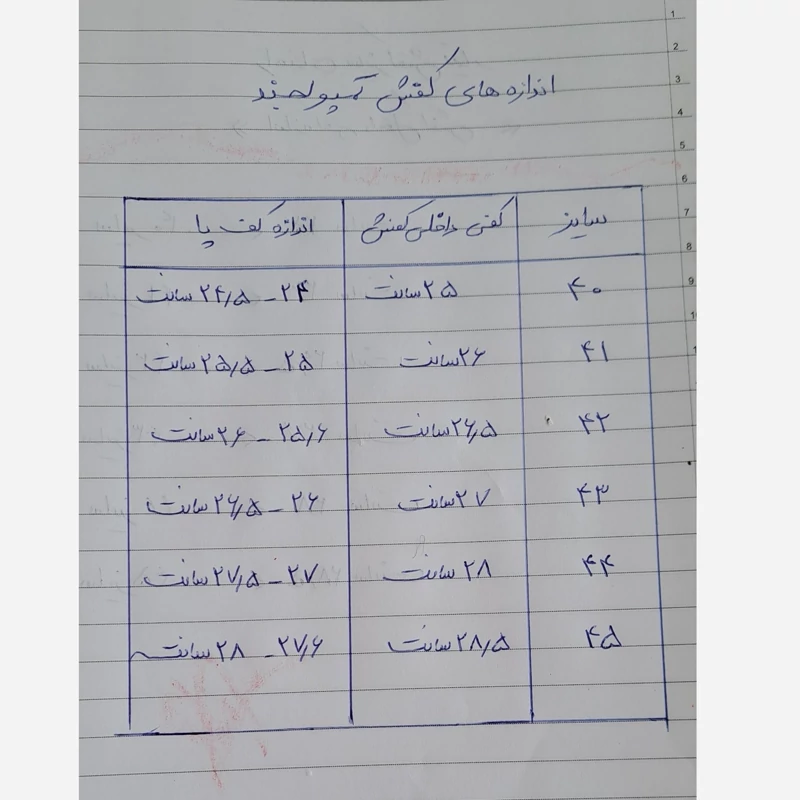 اندازه های کفش کمپو لجند
سایز کفی داخلی کفش اندازه کف پا
۴۰ ۲۵ سانت ۲۴ - ۲۴/۵ سانت
۴۱ ۲۶ سانت ۲۵ - ۲۵/۵ سانت
۴۲ ۲۶/۵ سانت ۲۵/۶ - ۲۶ سانت
۴۳ ۲۷ سانت ۲۶ - ۲۶/۵ سانت
۴۴ ۲۸ سانت ۲۷ - ۲۷/۵ سانت
۴۵ ۲۸/۵ سانت ۲۷/۶ - ۲۸ سانت
1
2
3
4
5
6
7
8
9